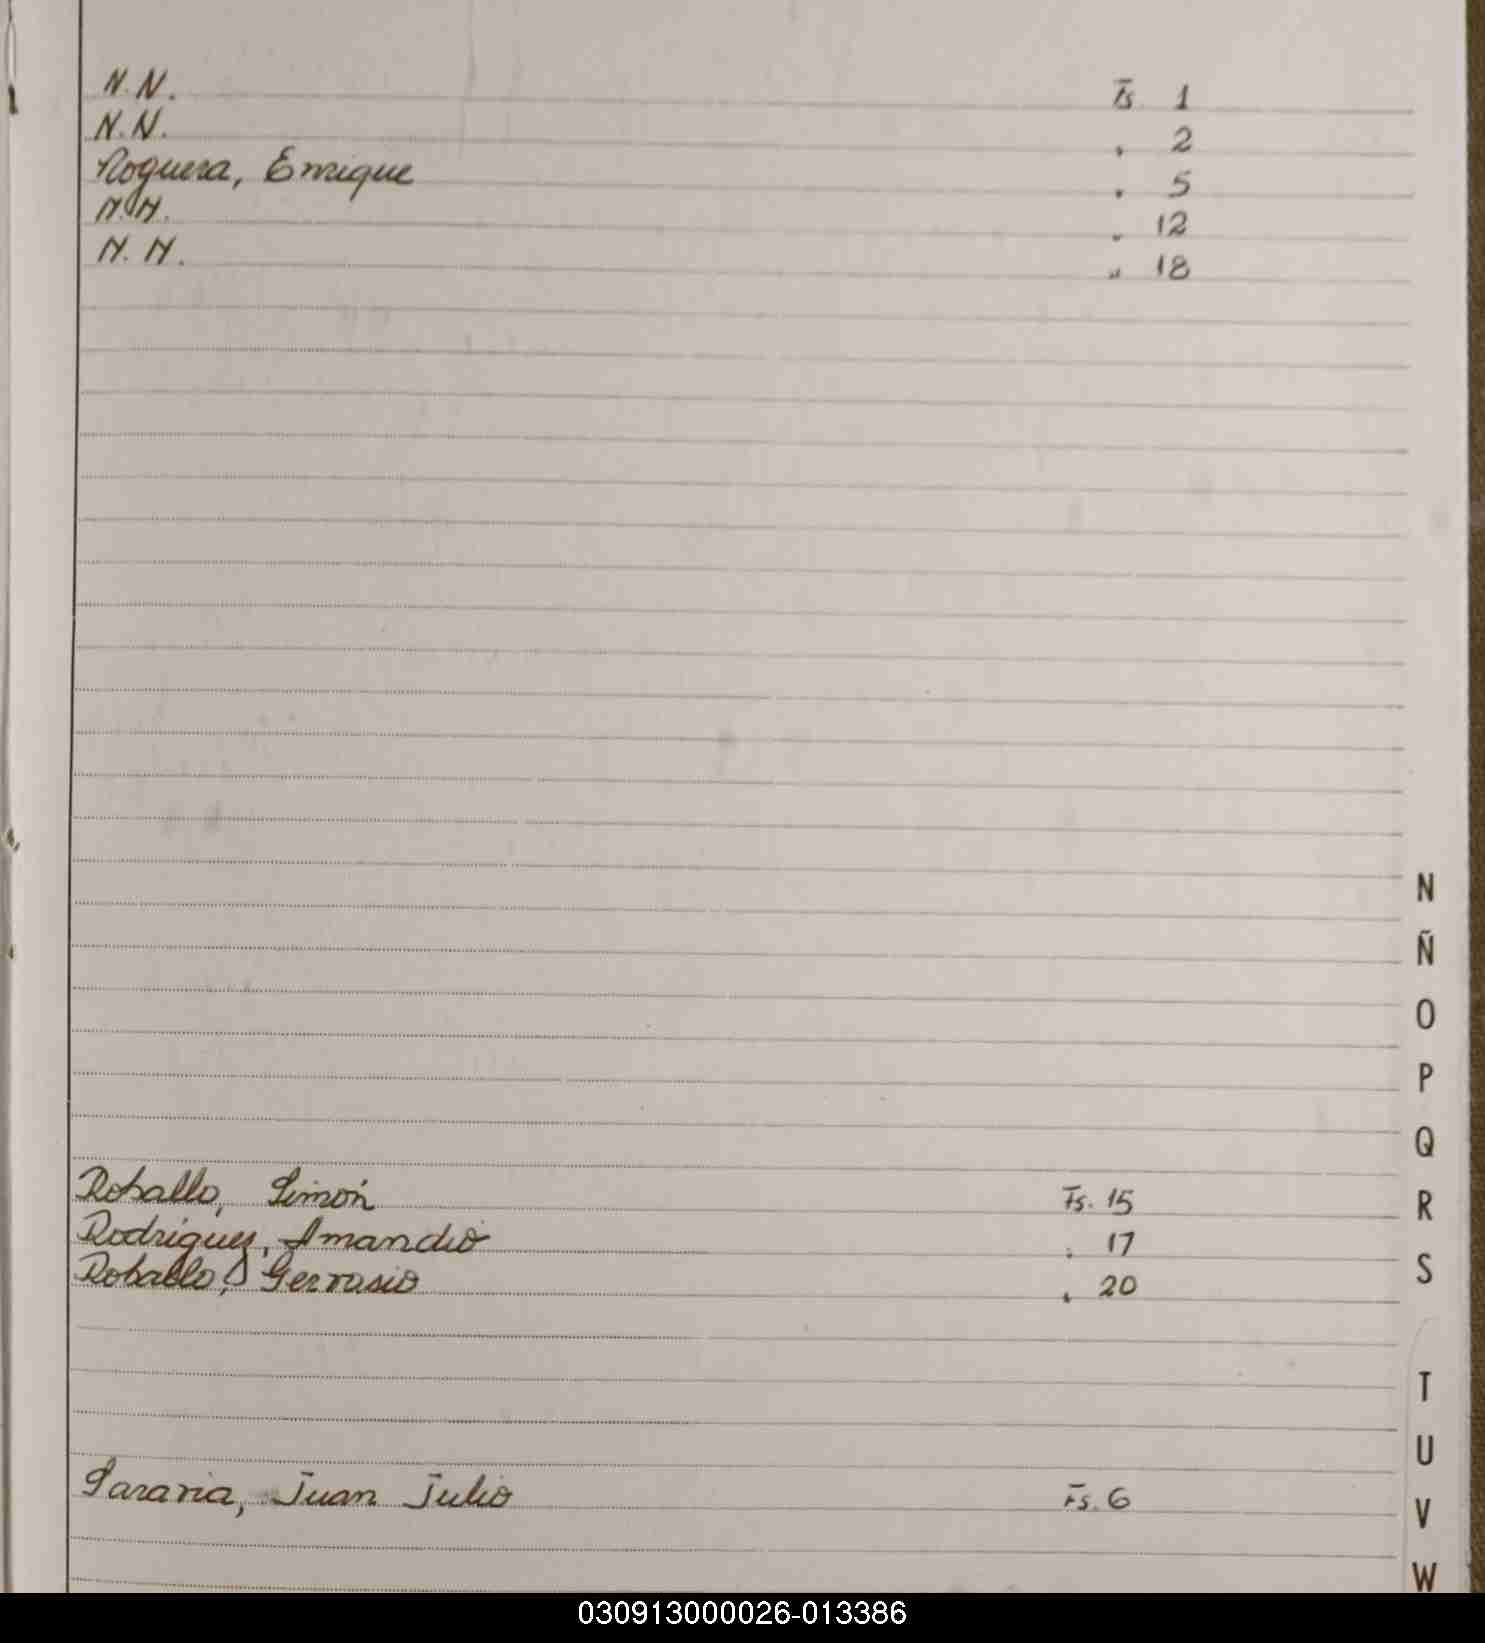 N.N. Fs 1
N.N. " 2
Noguera, Enrique " 5
N.N. " 12
N.N. " 18
N
Ñ
O
P
Q
Roballo, Simón Fs. 15
R
Rodrigues, Amandio " 17
Roballo, Gervasio " 20
S
T
U
Saravia, Juan Julio Fs. 6
V
W
030913000026-013386